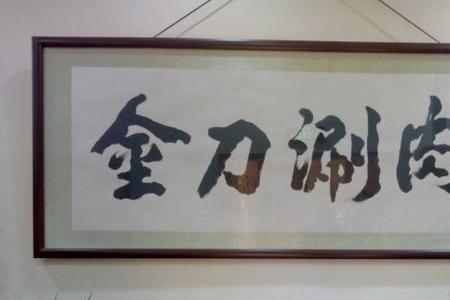 金刀涮肉